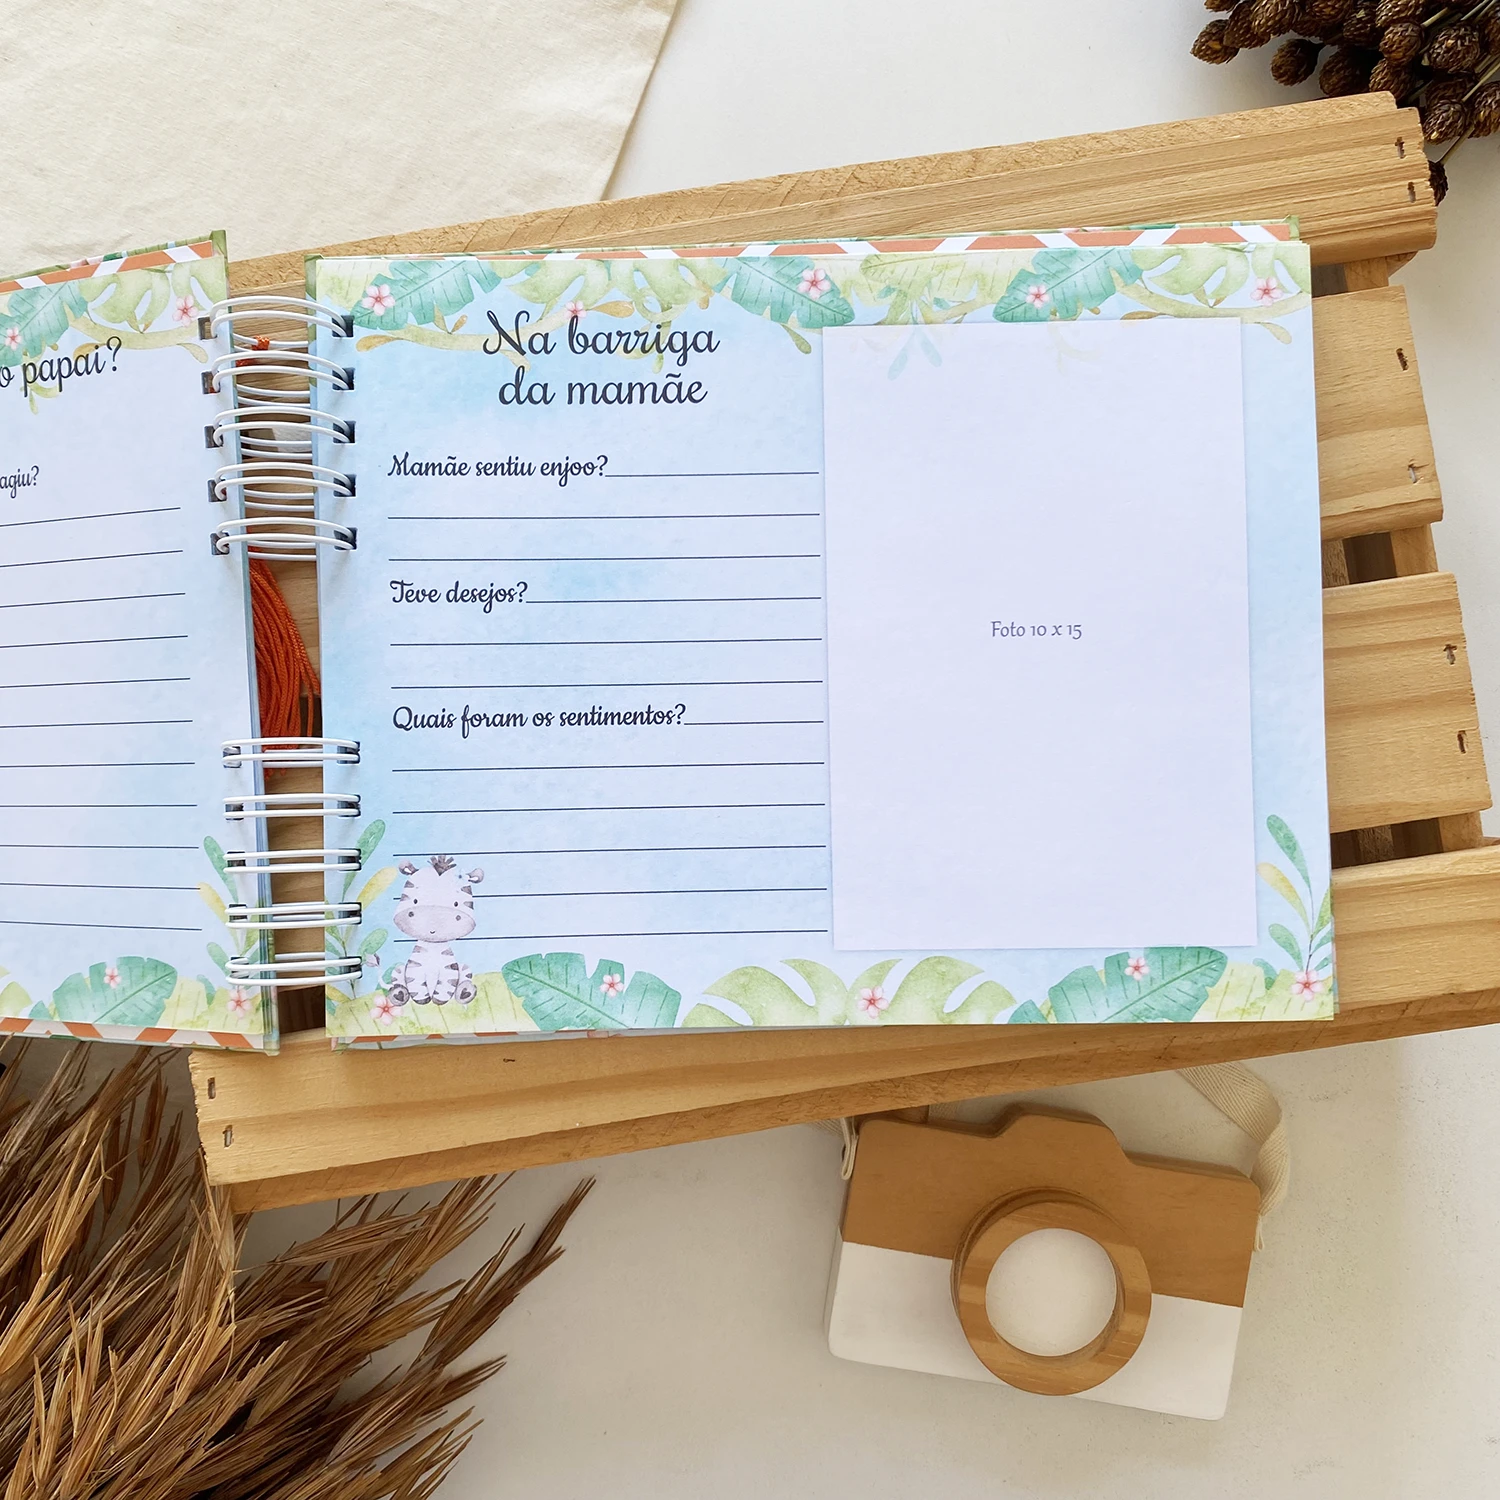 o papai?
agiu?
Na barriga
da mamãe
Mamãe sentiu enjoo?
Teve desejos?
Quais foram os sentimentos?
Foto 10 x 15